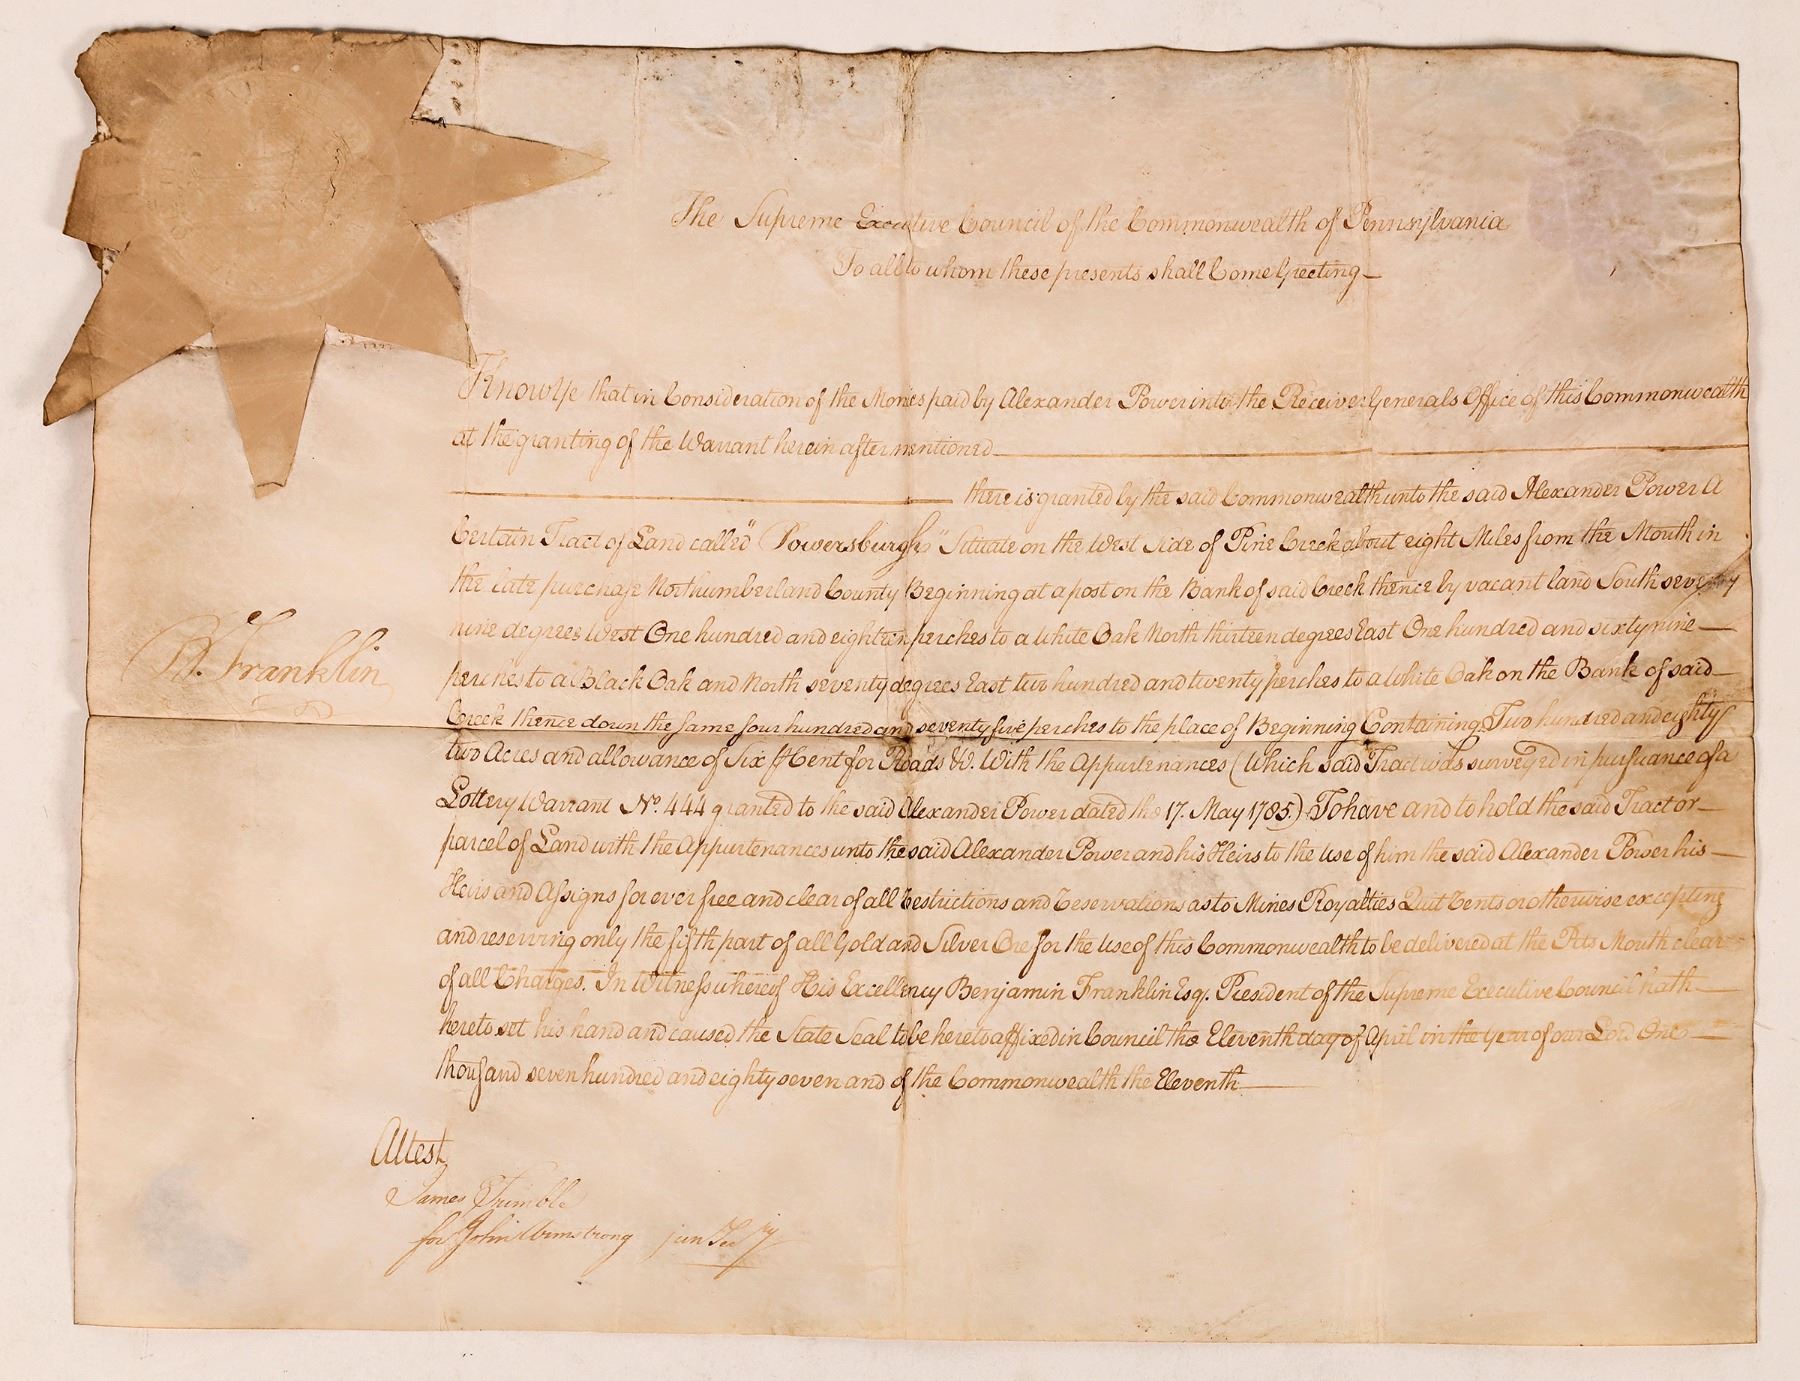 The Supreme Executive Council of the Commonwealth of Pennsylvania
To all to whom these presents shall Come Greeting
Know Ye that in Consideration of the Monies paid by Alexander Power into the Receiver Generals Office of this Commonwealth
at the granting of the Warrant herein after mentioned
there is granted by the said Commonwealth unto the said Alexander Power A
Certain Tract of Land called "Powersburgh" Situate on the West Side of Pine Creek about eight Miles from the Mouth in
the late purchase Northumberland County Beginning at a post on the Bank of said Creek thence by vacant land South seventy
nine degrees West One hundred and eighteen perches to a White Oak North thirteen degrees East One hundred and sixty nine
perches to a Black Oak and North seventy degrees East two hundred and twenty perches to a White Oak on the Bank of said
Creek thence down the same four hundred and seventy five perches to the place of Beginning Containing Two hundred and eighty
two Acres and allowance of Six Ct. for Roads &c. With the Appurtenances (Which said Tract was surveyed in pursuance of a
Lottery Warrant No. 444 granted to the said Alexander Power dated the 17. May 1785.) To have and to hold the said Tract or
parcel of Land with the Appurtenances unto the said Alexander Power and his Heirs to the use of him the said Alexander Power his
Heirs and Assigns for ever free and clear of all Restrictions and Reservations as to Mines Royalties Quit Rents or otherwise excepting
and reserving only the fifth part of all Gold and Silver Ore for the use of this Commonwealth to be delivered at the Pits Mouth clear
of all Charges. In Witness whereof His Excellency Benjamin Franklin Esq. President of the Supreme Executive Council hath
hereto set his hand and caused the State Seal to be hereto affixed in Council the Eleventh day of April in the year of our Lord One
thousand seven hundred and eighty seven and of the Commonwealth the Eleventh
B. Franklin
Attest
James Trimble
for John Armstrong jun Secy